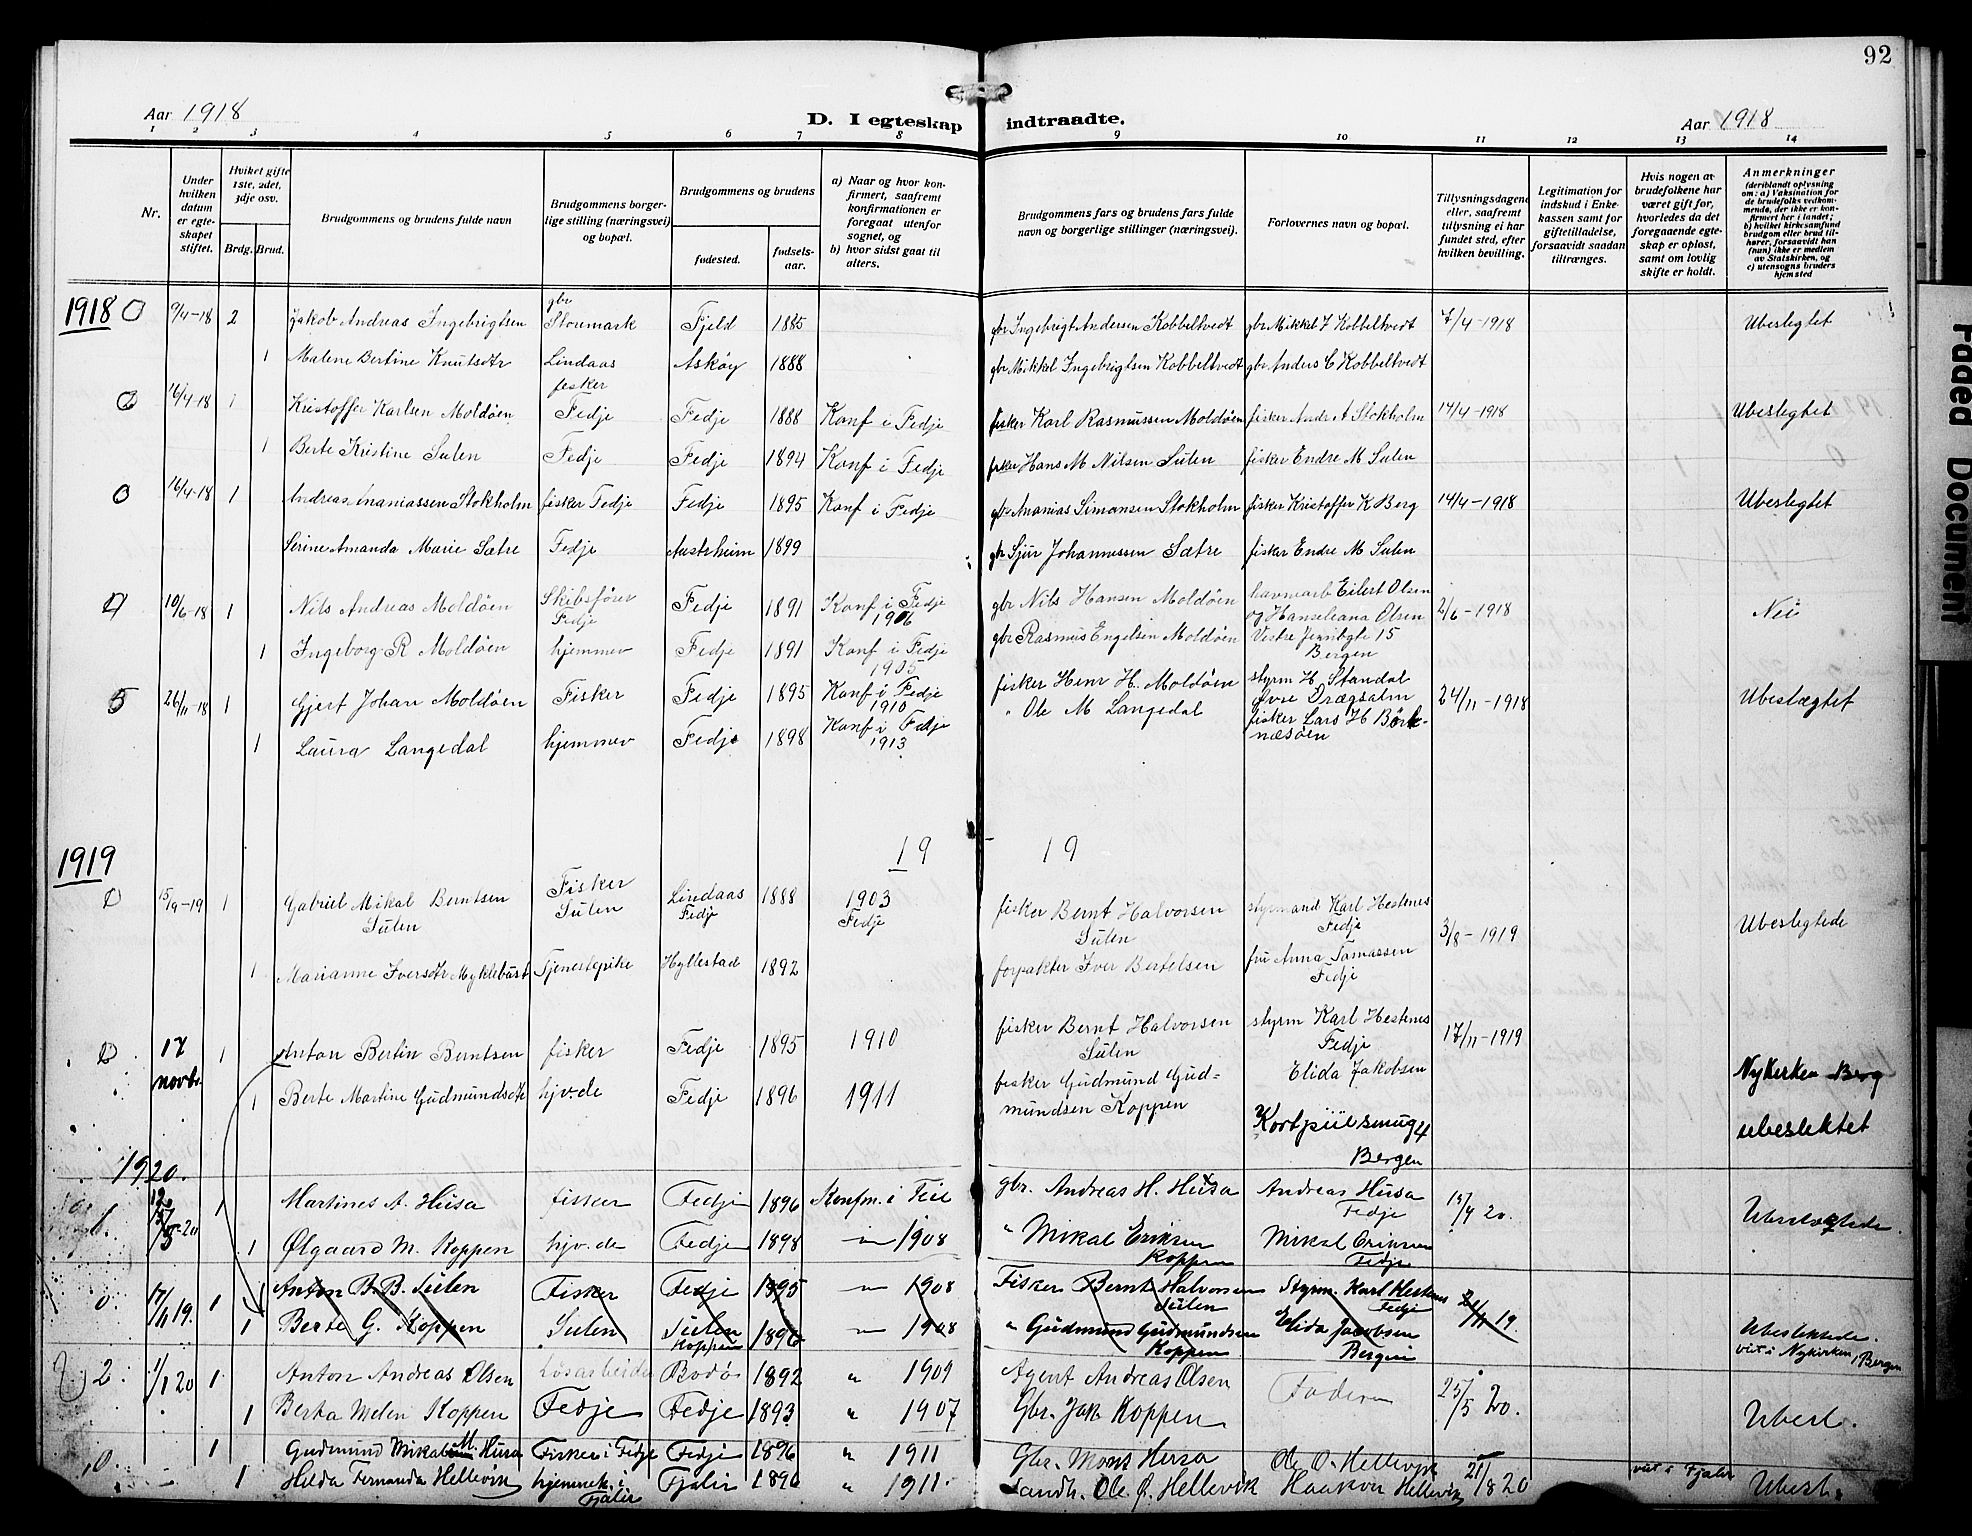 92
Aar 1918
D. I egteskap indtraadte.
Aar 1918
1 2 3 4 5 6 7 8 9 10 11 12 13 14
Nr.
Under hvilken datum er egteskapet stiftet.
Hvilket gifte 1ste, 2det, 3dje osv.
Brdg. Brud.
Brudgommens og brudens fulde navn
Brudgommens borgerlige stilling (næringsvei) og bopæl.
Brudgommens og brudens
fødested.
fødselsaar.
a) Naar og hvor konfirmert, saafremt konfirmationen er foregaat utenfor sognet, og
b) hvor sidst gaat til alters.
Brudgommens fars og brudens fars fulde navn og borgerlige stillinger (næringsvei).
Forlovernes navn og bopæl.
Tillysningsdagene eller, saafremt tillysning ei har fundet sted, efter hvilken bevilling.
Legitimation for indskud i Enkekassen samt for giftetilladelse, forsaavidt saadan tiltrænges.
Hvis nogen av brudefolkene har været gift før, hvorledes da det foregaaende egteskap er opløst, samt om lovlig skifte er holdt.
Anmerkninger
(deriblandt oplysning om: a) Vaksination for de brudefolks vedkommende, der ikke er konfirmert her i landet; b) hvilket kirkesamfund brudgom eller brud tilhører, forsaavidt han (hun) ikke er medlem av Statskirken, og c) utensogns bruders hjemsted
1918 0 9/4-18 2 Jakob Andreas Ingebrigtsen gbr Stormark Fjeld 1885 gbr Ingebrigt Andersen Kobbeltvedt gbr Mikkel I Kobbeltvedt 7/4-1918 Ubeslegtet
1 Malene Bertine Knutsdtr Lindaas Askøy 1888 gbr Mikkel Ingebrigtsen Kobbeltvedt gbr Anders C Kobbeltvedt
16/4-18 1 Kristoffer Karlsen Moldøen fisker Fedje Fedje 1888 Konf i Fedje fisker Karl Rasmussen Moldøen fisker Andr A Stokholm 14/4-1918 Ubeslegtet
1 Berte Kristine Sulen Fedje Fedje 1894 Konf i Fedje fisker Hans M Nilsen Sulen fisker Endre M Sulen
0 16/4-18 1 Andreas Ananiassen Stokholm fisker Fedje Fedje 1895 Konf i Fedje gbr Ananias Simonsen Stokholm fisker Kristoffer K Berg 14/4-1918 Ubeslegtet
Serine Amanda Marie Sætre Fedje Austrheim 1899 gbr Sjur Johannessen Sætre fisker Endre M Sulen
10/6-18 1 Nils Andreas Moldøen Skibsfører Fedje Fedje 1891 Konf i Fedje 1906 gbr Nils Hansen Moldøen havnearb Eilert Olsen og Hanseleana Olsen 2/6-1918 Nei
1 Ingeborg R Moldøen hjemmev Fedje 1891 Konf i Fedje 1905 gbr Rasmus Engelsen Moldøen Vestre 15 Bergen
5 26/11-18 1 Gjert Johan Moldøen Fisker Fedje 1895 Konf i Fedje 1910 fisker Henr H. Moldøen styrm H. Standal Øvre Drægsalm 24/11-1918 Ubeslægtet
1 Laura Langedal hjemmev Fedje 1898 Konf i Fedje 1913 " Ole M Langedal fisker Lars H Børknæsøen
19 19
1919
15/9-19 1 Gabriel Mikal Berntsen Sulen Fisker Sulen Lindaas Fedje 1888 1903 Fedje fisker Bernt Halvorsen Sulen styrmand Karl Hestenes Fedje 3/8-1919 Ubeslegtede
1 Marianne Iversdtr Myklebust Tjenestepike Hyllestad 1892 forpakter Iver Bertelsen fru Anna Tomassen Fedje
17 novbr. 1 Anton Bertin Berntsen fisker Fedje 1895 1910 fisker Bernt Halvorsen Sulen styrm Karl Hestenes Fedje 17/11-1919 Nykirken Berg
1 Berte Martine Gudmundsdtr hjv.de Fedje 1896 1911 fisker Gudmund Gudmundsen Koppen Elida Jakobsen Kortpiilsmug 4 Bergen ubeslektet
1920.
1 Martines A. Husa fisker Fedje 1896 Konfm. i gbr. Andreas H. Husa Andreas Husa Fedje 20.
1 Olgaard M. Koppen hjv.de Fedje 1898 -"- 1908 " Mikal Eriksen Koppen Mikal Eriksen Fedje
0. 17/11 19. 1 Anton B. B. Sulen Fisker Fedje 1895 -"- 1908 Fisker Bernt Halvorsen Sulen Styrm. Karl Hestenes Fedje 19.
1 Berte G. Koppen Sulen Sulen Koppen 1896 -"- 1908 " Gudmund Gudmundsen Koppen Elida Jacobsen Bergen Ubeslektede. viet i Nykirken, Bergen
2. 1/1 20 1 Anton Andreas Olsen Løsarbeider Bodø 1892 " 1909 Agent Andreas Olsen Fadern 25/5 20.
1 Berta Melen Koppen Fedje Fedje 1893 " 1907 Gbr. Jak Koppen Ubesl.
0. 1 Gudmund Mikal M. Husa Fisker i Fedje Fedje 1896 " 1911 Gbr. Mons Husa Ole O. Hellevik 21/8 20 viet i Fjaler
1 Hilda Fernanda Hellevik hjemmev. i Fjaler Fjaler 1896 " 1911. Landh. Ole O. Hellevik Haakon Hellevik Ubesl.
Faded Document